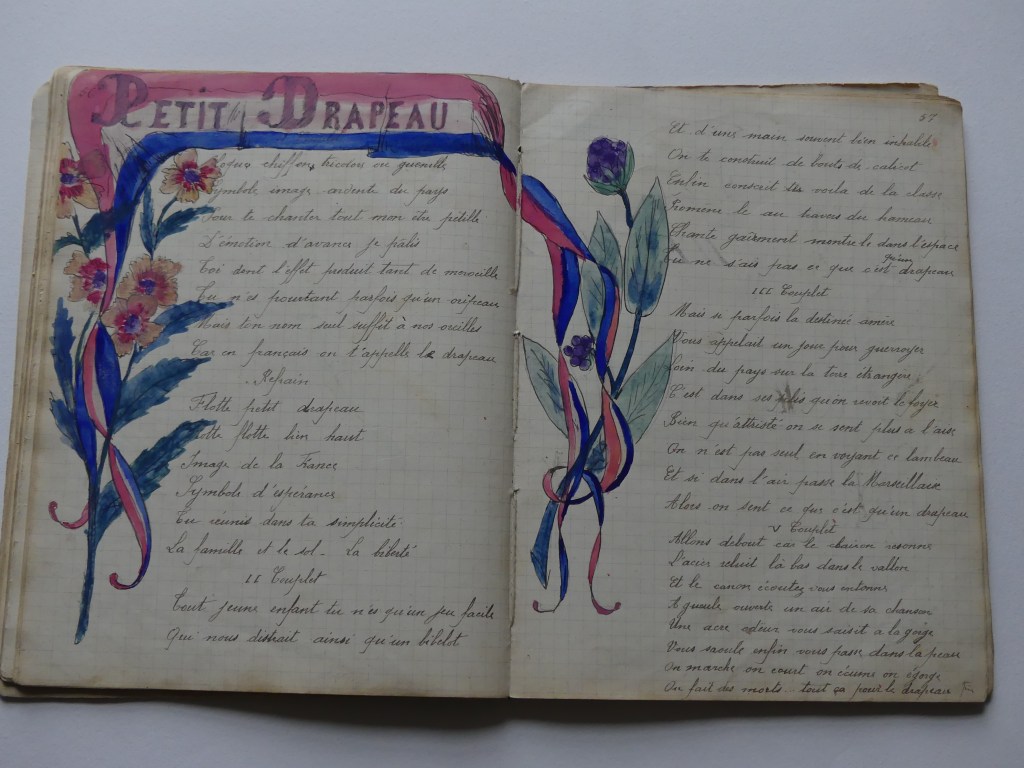 PETIT DRAPEAU
Loque chiffon tricolore ou guenille
Symbole image ardente du pays
Pour te chanter tout mon être pétille
D'émotion d'avance je pâlis
Toi dont l'effet produit tant de merveille
Tu n'es pourtant parfois qu'un oripeau
Mais ton nom seul suffit à nos oreilles
Car en français on t'appelle le drapeau
Refrain
Flotte petit drapeau
Flotte flotte bien haut
Image de la France
Symbole d'espérance
Tu réunis dans ta simplicité
La famille et le sol. La liberté
II Couplet
Tout jeune enfant tu n'es qu'un jeu facile
Qui nous distrait ainsi qu'un bibelot
57
Et d'une main souvent bien inhabile
On te construit de bouts de calicot
Enfin conscrit te voila de la classe
Promène le au travers du hameau
Chante gaîment mentule dans l'espace
Tu ne s'ais pas ce que c'est qu'un drapeau
III Couplet
Mais si parfois la destinée amère
Vous appelait un jour pour guerroyer
Loin du pays sur la terre étrangère
C'est dans ses plis qu'on revoit le foyer
Bien qu'attristé on se sent plus a l'aise
On n'est pas seul en voyant ce lambeau
Et si dans l'air passe la Marseillaise
Alors on sent ce que c'est qu'un drapeau
V Couplet
Allons debout car le clairon resonne
L'acier reluit là bas dans le vallon
Et le canon écoutez vous entonne
A gueule ouverte un air de sa chanson
Une acre odeur vous saisit a la gorge
Vous saoule enfin vous passe dans la peau
On marche on court on écume on égorge
On fait des morts tout ça pour le drapeau